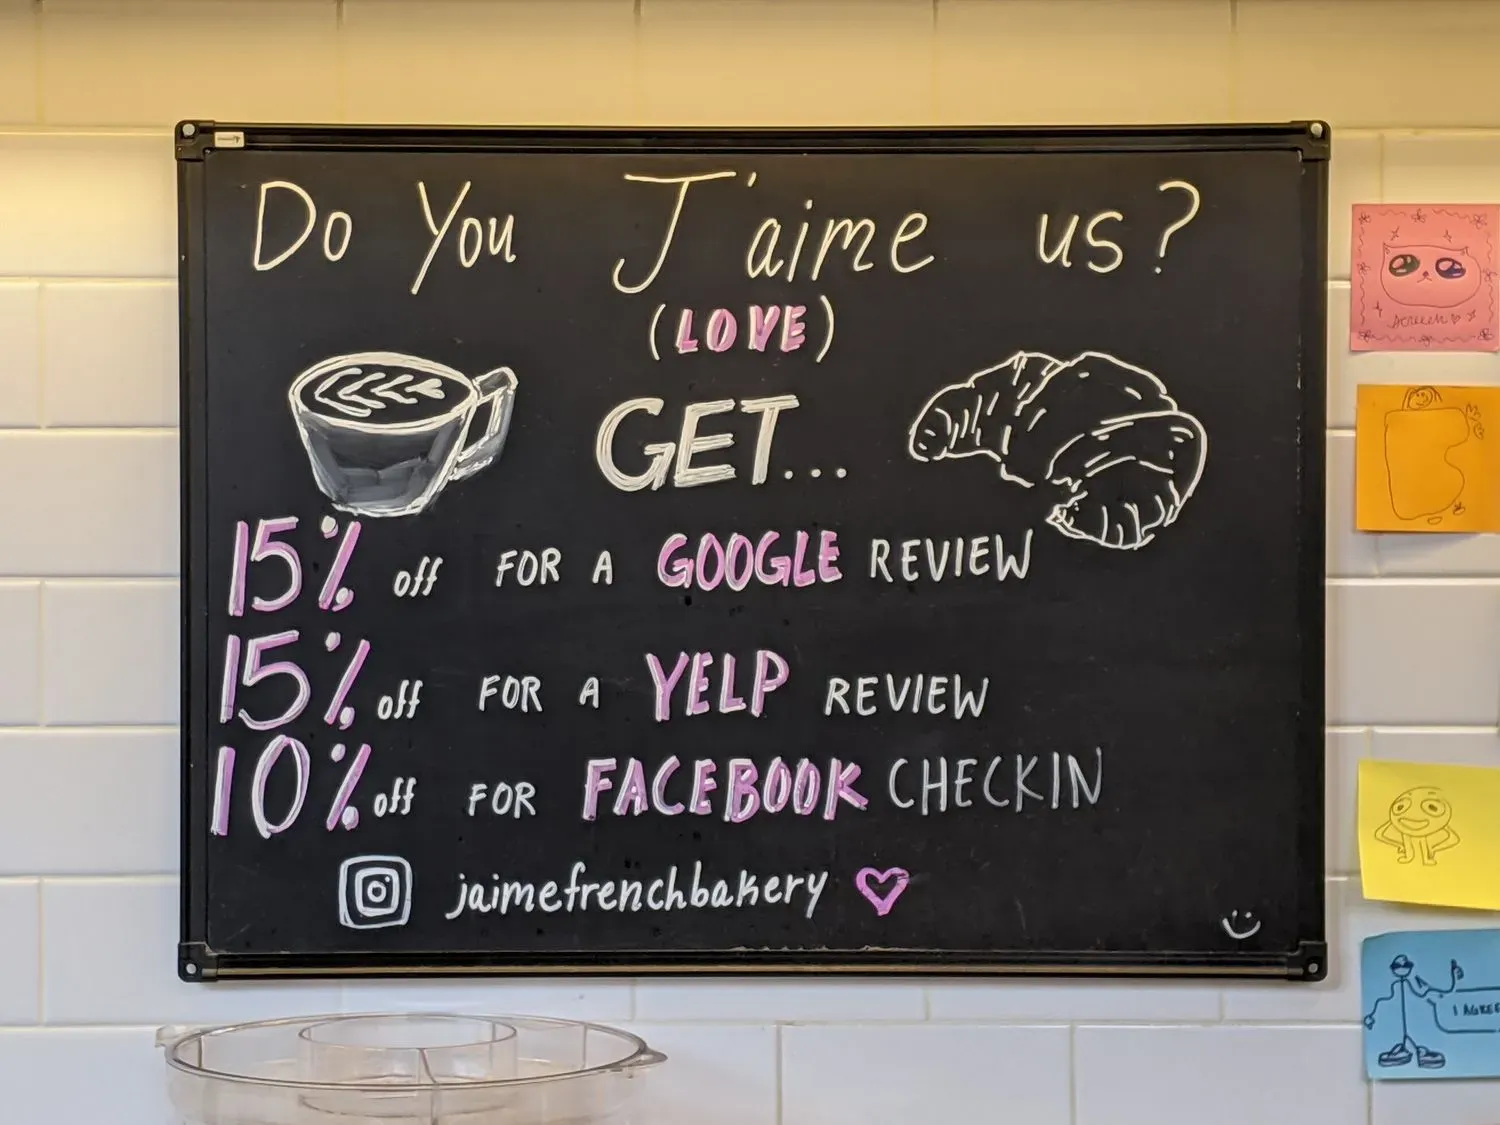 Do You J'aime us?
(LOVE)
GET...
15% off FOR A GOOGLE REVIEW
15% off FOR A YELP REVIEW
10% off FOR FACEBOOK CHECKIN
jaimefrenchbakery
I AGREE